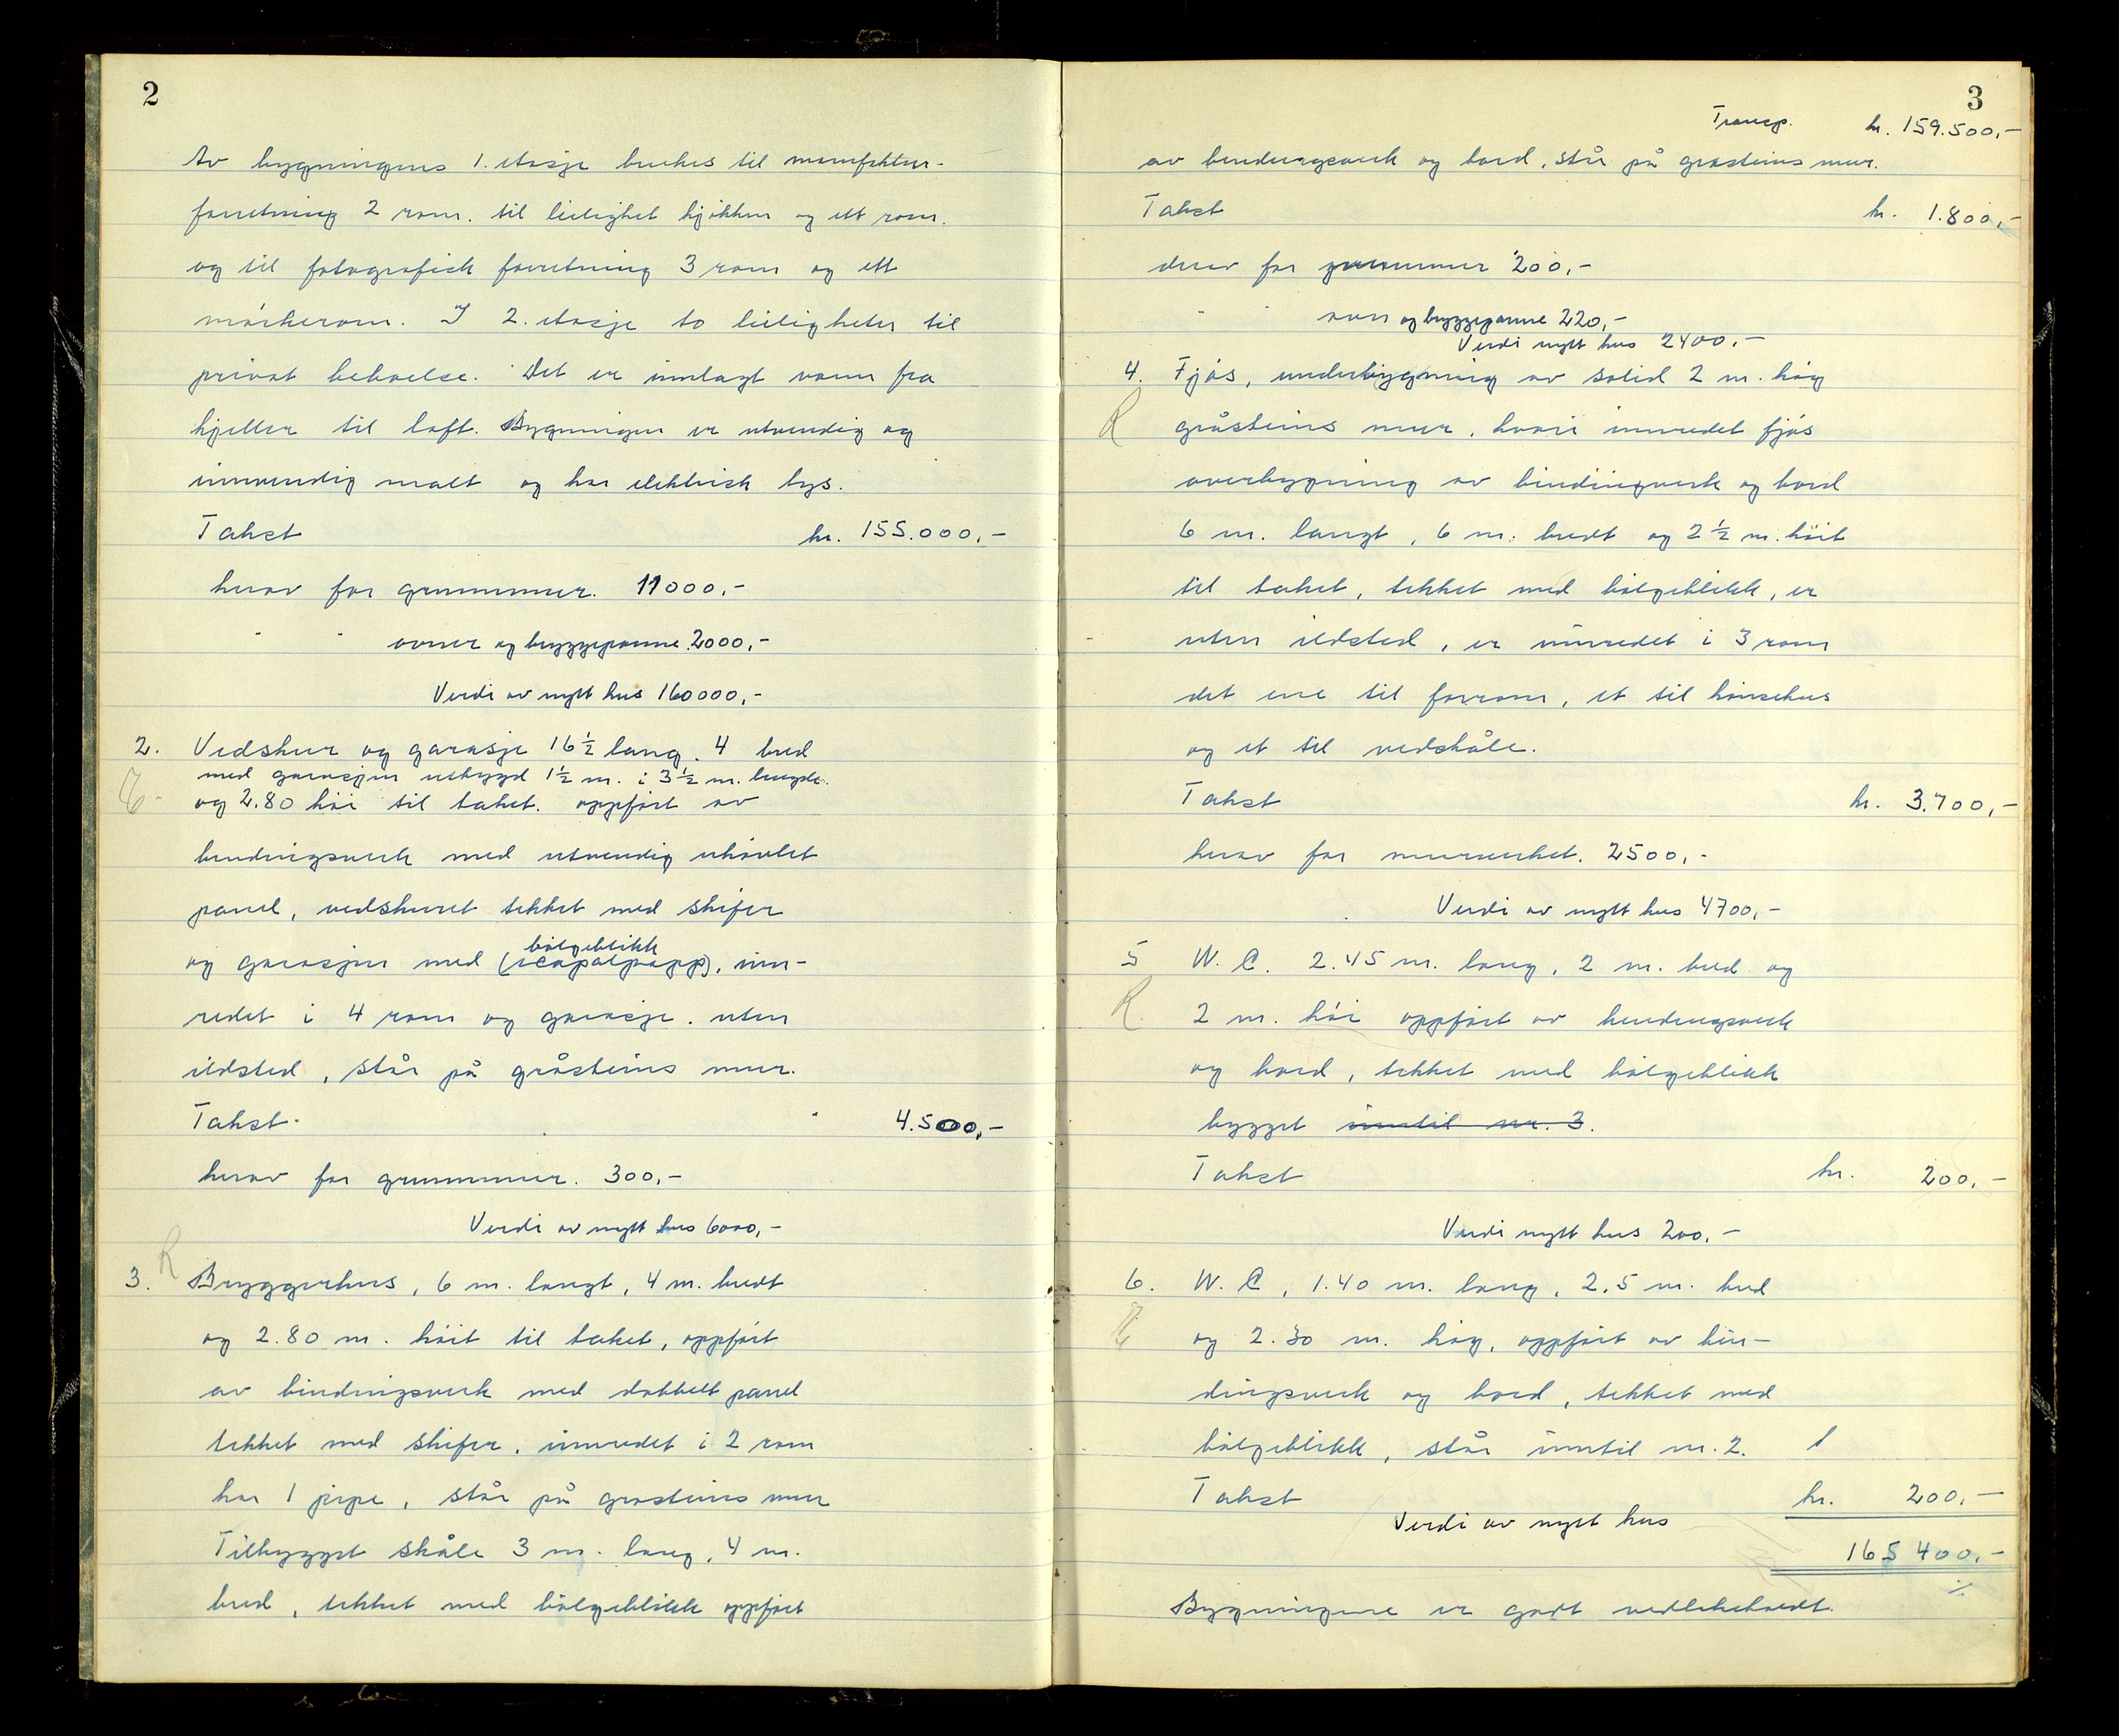 2
Av bygningens 1. etasje brukes til manufaktur-
forretning 2 rom. til leilighet kjøkken og ett rom.
og til fotografisk forretning 3 rom og ett
mörkerom. I 2. etasje to leiligheter til
privat beboelse. Det er innlagt vann fra
kjeller til loft. Bygningen er utvendig og
innvendig malt og har elektrisk lys.
Takst kr. 155.000,-
herav for grunnmur. 11000,-
" " ovner og bryggepanne 2000,-
Verdi av nytt hus 160000,-
2. Vedskur og garasje 16 1/2 lang. 4 bred
med garasjen utbygd 1 1/2 m. i 3 1/2 m. lengde.
og 2.80 höi til taket. oppfört av
bindingsverk med utvendig uhövlet
panel, vedskuret tekket med skifer
bölgeblikk
og garasjen med (icopalpapp), inn-
redet i 4 rom og garasje. uten
ildsted, står på gråsteins mur.
Takst " 4.500,-
herav for grunnmur. 300,-
Verdi av nytt hus 6000,-
R
3. Bryggerhus, 6 m. langt, 4 m. bredt
og 2.80 m. höit til taket, oppfört
av bindingsverk med dobbelt panel
tekket med skifer. innredet i 2 rom
har 1 pipe, står på grasteins mur
Tilbygget skåle 3 m. lang, 4 m.
bred, tekket med bölgeblikk oppfört
3
Transp. kr. 159.500,-
av bindingsverk og bord, står på grasteins mur.
Takst kr. 1.800,-
derav for grunnmur 200,-
" " ovn og bryggepanne 220,-
Verdi nytt hus 2400,-
4. Fjös, underbygning av solid 2 m. høg
R gråsteins mur, hvori innredet fjös
overbygning av bindingverk og bord
6 m. langt, 6 m. bredt og 2 1/2 m. höit
til taket, tekket med bölgeblikk, er
uten ildsted, er innredet i 3 rom
det ene til forrom, et til hönsehus
og et til vedskåle.
Takst kr. 3.700,-
herav for murverket. 2500,-
Verdi av nytt hus 4700,-
5 W.C. 2.45 m. lang, 2 m. bred og
R. 2 m. höi oppfört av bindingsverk
og bord, tekket med bölgeblikk
bygget inntil nr. 3.
Takst kr. 200,-
Verdi nytt hus 200,-
6. W.C, 1.40 m. lang, 2.5 m. bred
og 2.30 m. høg, oppfört av bin-
dingsverk og bord, tekket med
bölgeblikk, står inntil nr. 2. 1
Takst kr. 200,-
Verdi av nytt hus
165400,-
Bygningene er godt vedlikeholdt.